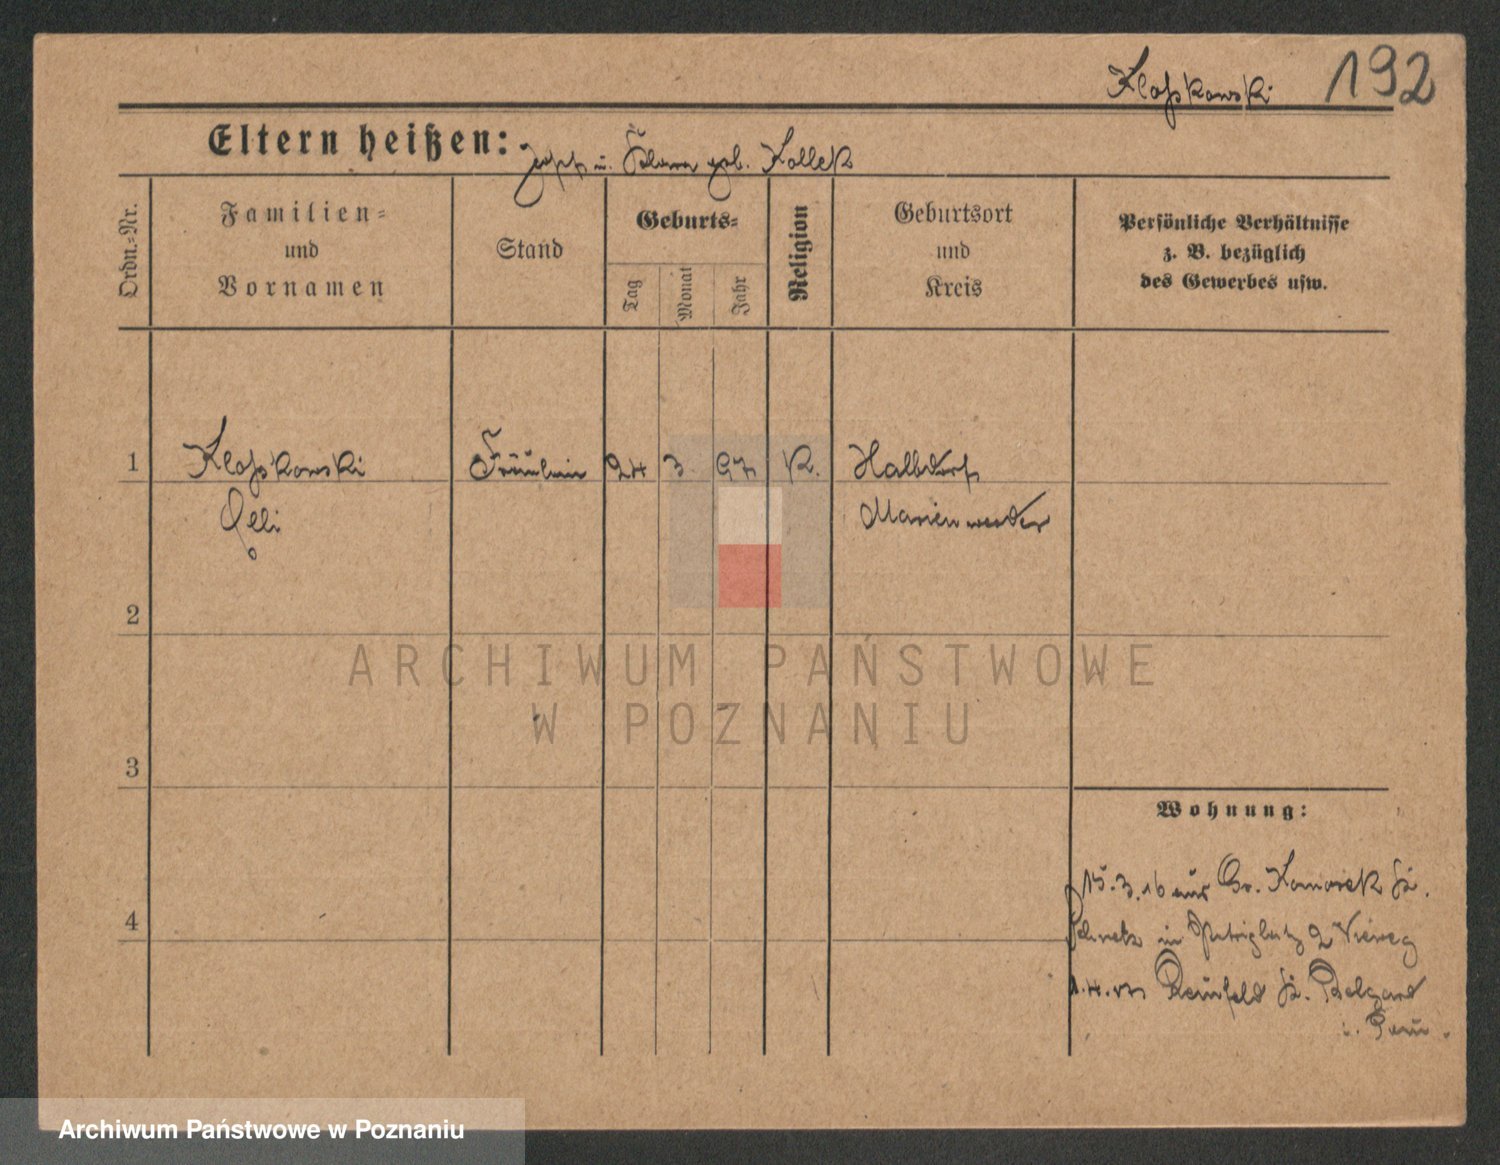 Kloßkowski 192
Eltern heißen: Josef u. Klara geb. Kollek
Ordn.-Nr.
Familien-
und
Vornamen
Stand
Geburts-
Tag
Monat
Jahr
Religion
Geburtsort
und
Kreis
Persönliche Verhältnisse
z. B. bezüglich
des Gewerbes usw.
1 Kloßkowski Fräulein 24 3 97 K. Halbdorf
Marienwerder
2
3
4
Wohnung:
15.3.16 aus Gr. Komorsk Kr.
Schwetz in 2 Vieweg
1.4. Kr. Belgard
i. Pom.
ARCHIWUM PAŃSTWOWE
W POZNANIU
Archiwum Państwowe w Poznaniu